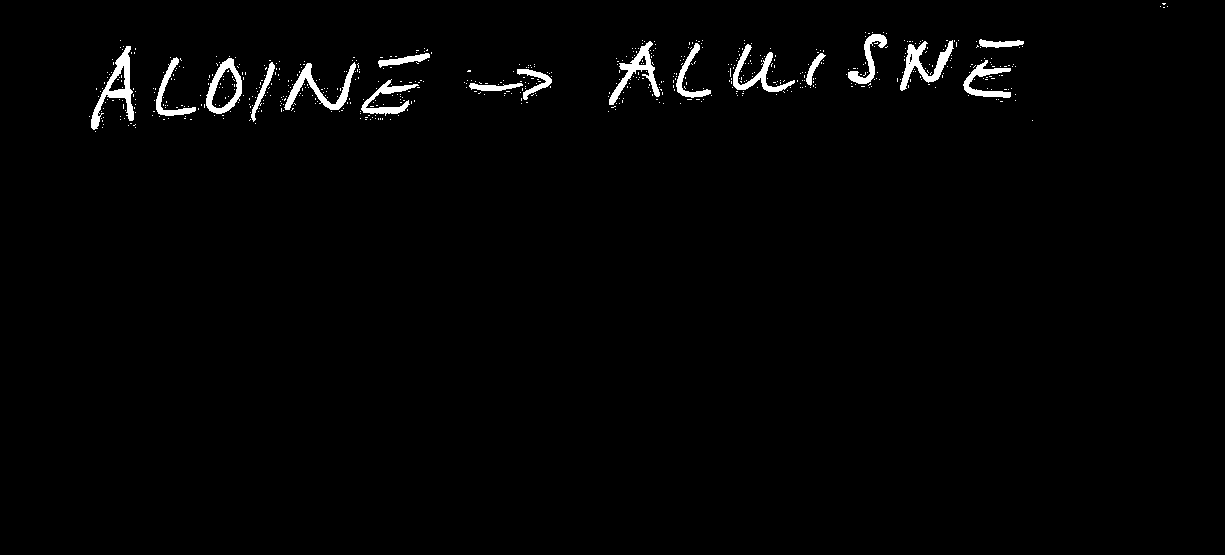 ALOINE → ALUISNE